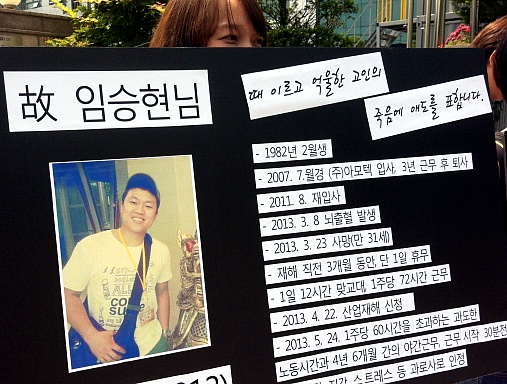 故 임승현님
때 이르고 억울한 고인의
죽음에 애도를 표합니다.
- 1982년 2월생
- 2007. 7.월경 (주)아모텍 입사. 3년 근무 후 퇴사
- 2011. 8. 재입사
- 2013. 3. 8 뇌출혈 발생
- 2013. 3. 23 사망(만 31세)
- 재해 직전 3개월 동안, 단 1일 휴무
- 1일 12시간 맞교대, 1주당 72시간 근무
- 2013. 4. 22. 산업재해 신청
- 2013. 5. 24. 1주당 60시간을 초과하는 과도한
노동시간과 4년 6개월 간의 야간근무, 근무 시작 30분전
스트레스 등 과로사로 인정